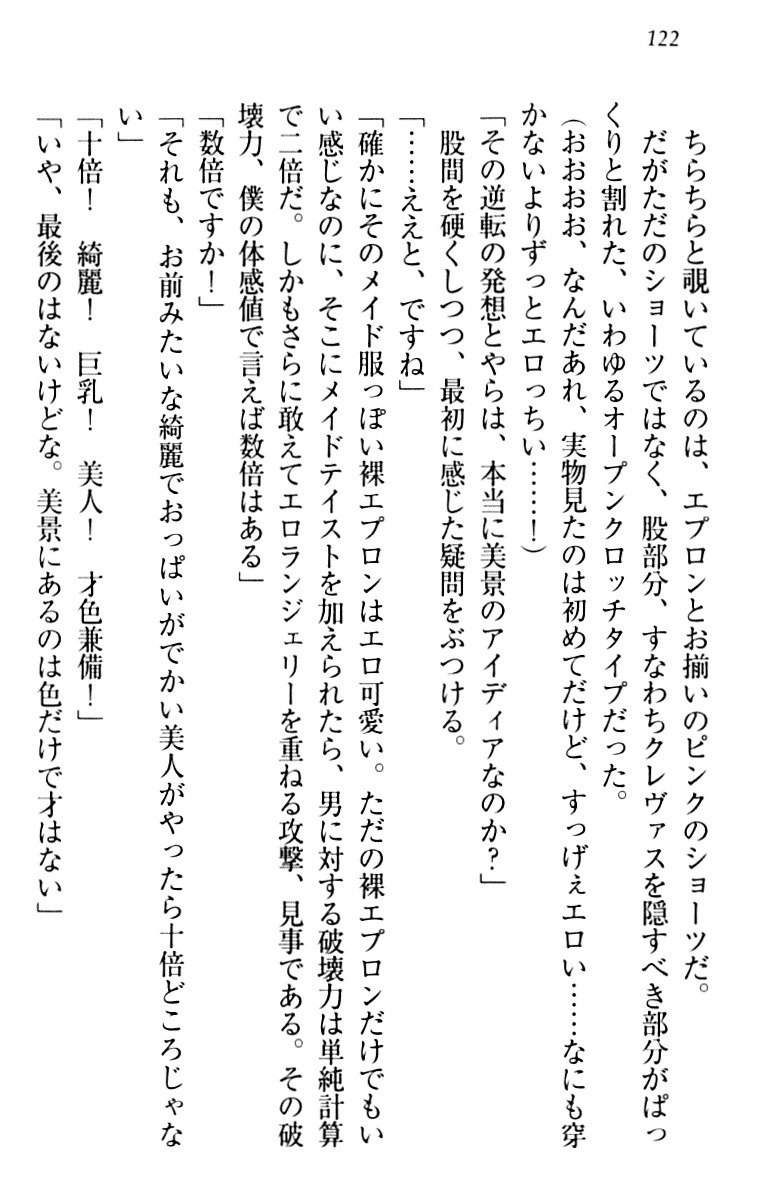 122
ちらちらと覗いているのは、エプロンとお揃いのピンクのショーツだ。
だがただのショーツではなく、股部分、すなわちクレヴァスを隠すべき部分がぱっ
くりと割れた、いわゆるオープンクロッチタイプだった。
(おおおお、なんだあれ、実物見たのは初めてだけど、すっげぇエロい……なにも穿
かないよりずっとエロっちい……!)
「その逆転の発想とやらは、本当に美景のアイディアなのか?」
股間を硬くしつつ、最初に感じた疑問をぶつける。
「……ええと、ですね」
「確かにそのメイド服っぽい裸エプロンはエロ可愛い。ただの裸エプロンだけでもい
い感じなのに、そこにメイドテイストを加えられたら、男に対する破壊力は単純計算
で二倍だ。しかもさらに敢えてエロランジェリーを重ねる攻撃、見事である。その破
壊力、僕の体感値で言えば数倍はある」
「数倍ですか!」
「それも、お前みたいな綺麗でおっぱいがでかい美人がやったら十倍どころじゃな
い」
「十倍! 綺麗! 巨乳! 美人! 才色兼備!」
「いや、最後のはないけどな。美景にあるのは色だけで才はない」